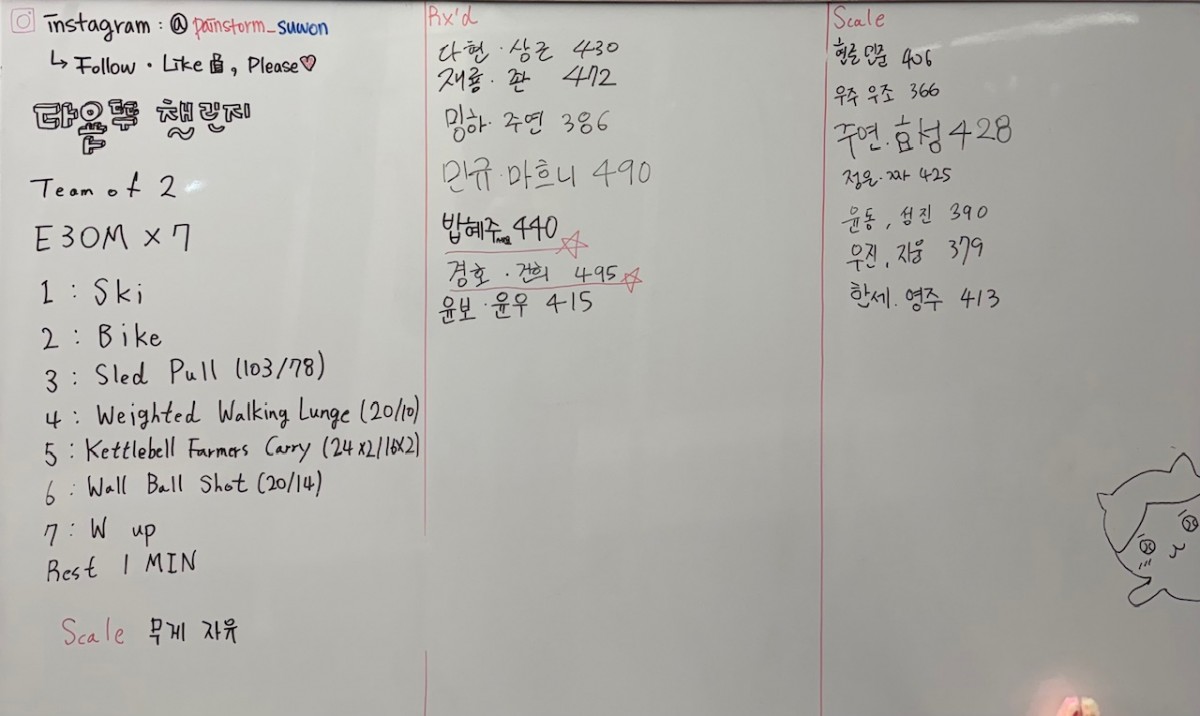 instagram : @ painstorm_suwon
↳ Follow · Like 👍, Please♡
땀욜뚝 챌린지
Team of 2
E3OM x 7
1 : Ski
2 : Bike
3 : Sled Pull (103/78)
4 : Weighted Walking Lunge (20/10)
5 : Kettlebell Farmers Carry (24x2/16x2)
6 : Wall Ball Shot (20/14)
7 : W up
Rest 1 MIN
Scale 무게 자유
Rx'd
다현 · 상근 430
재룡 · 환 472
밍하 · 주연 386
민규 · 마흐니 490
밥혜주 440
경호 · 건희 495
윤보 · 윤우 415
Scale
민준 406
우주 우조 366
주연 · 효성 428
정은 · 짜 425
윤동, 성진 390
우진, 지웅 379
한세 · 영주 413